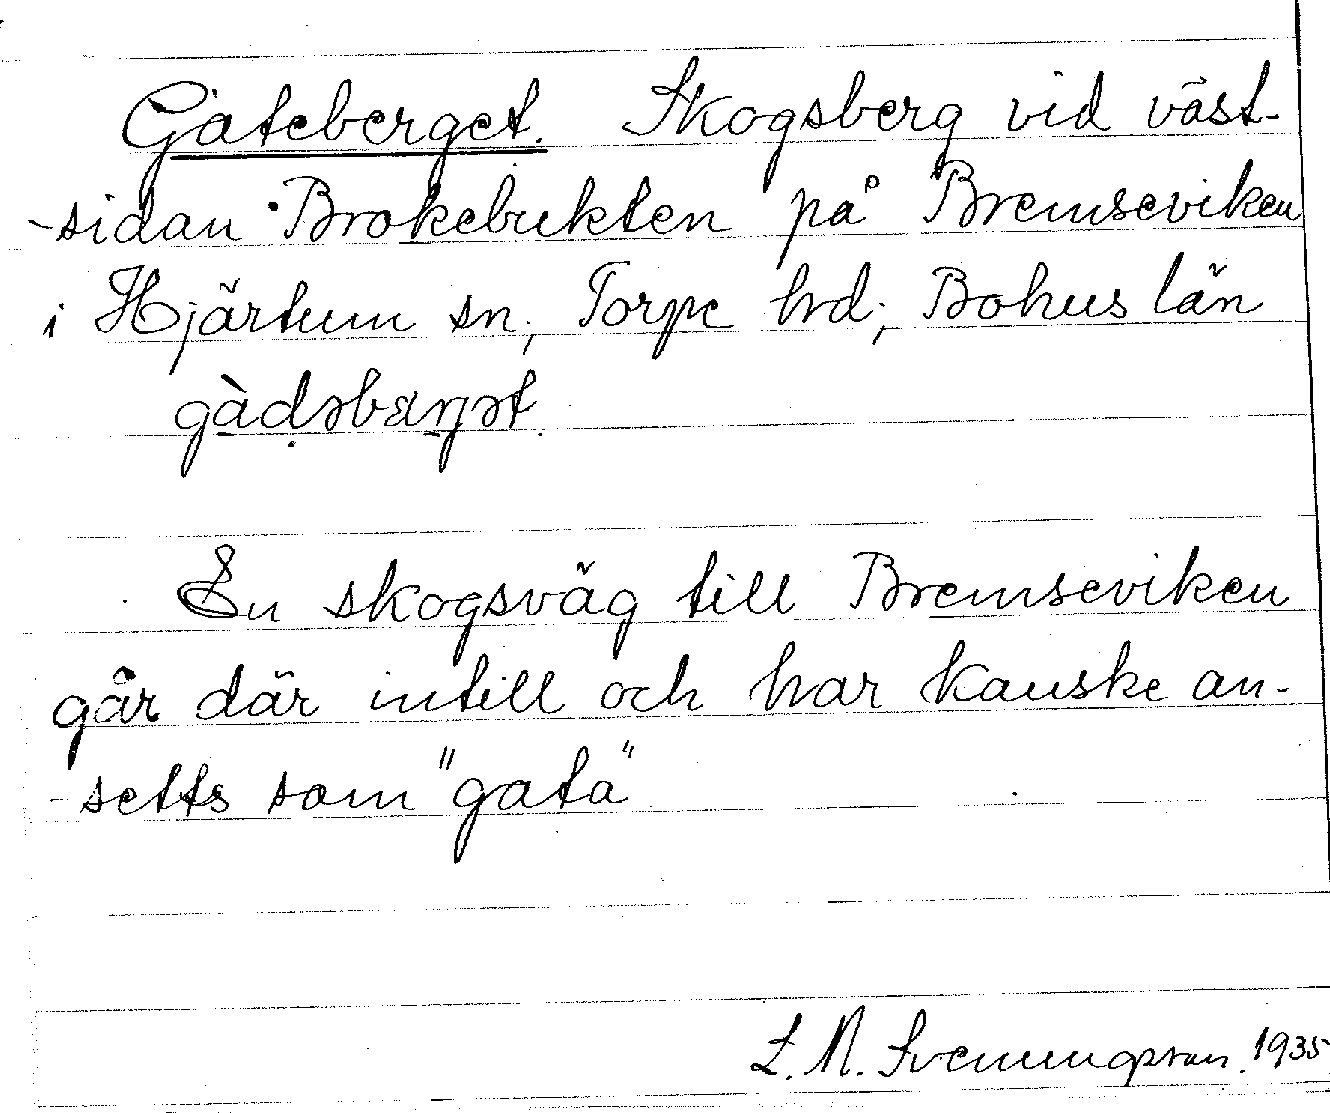 Gateberget. Skogsberg vid väst-
-sidan Brokebukten på Bremseviken
i Hjärtum sn; Torpe hd; Bohus län
gàdəbæŋət.
En skogsväg till Bremseviken
går där intill och har kanske an-
-setts som "gata"
L. N. Svenungsson. 1935